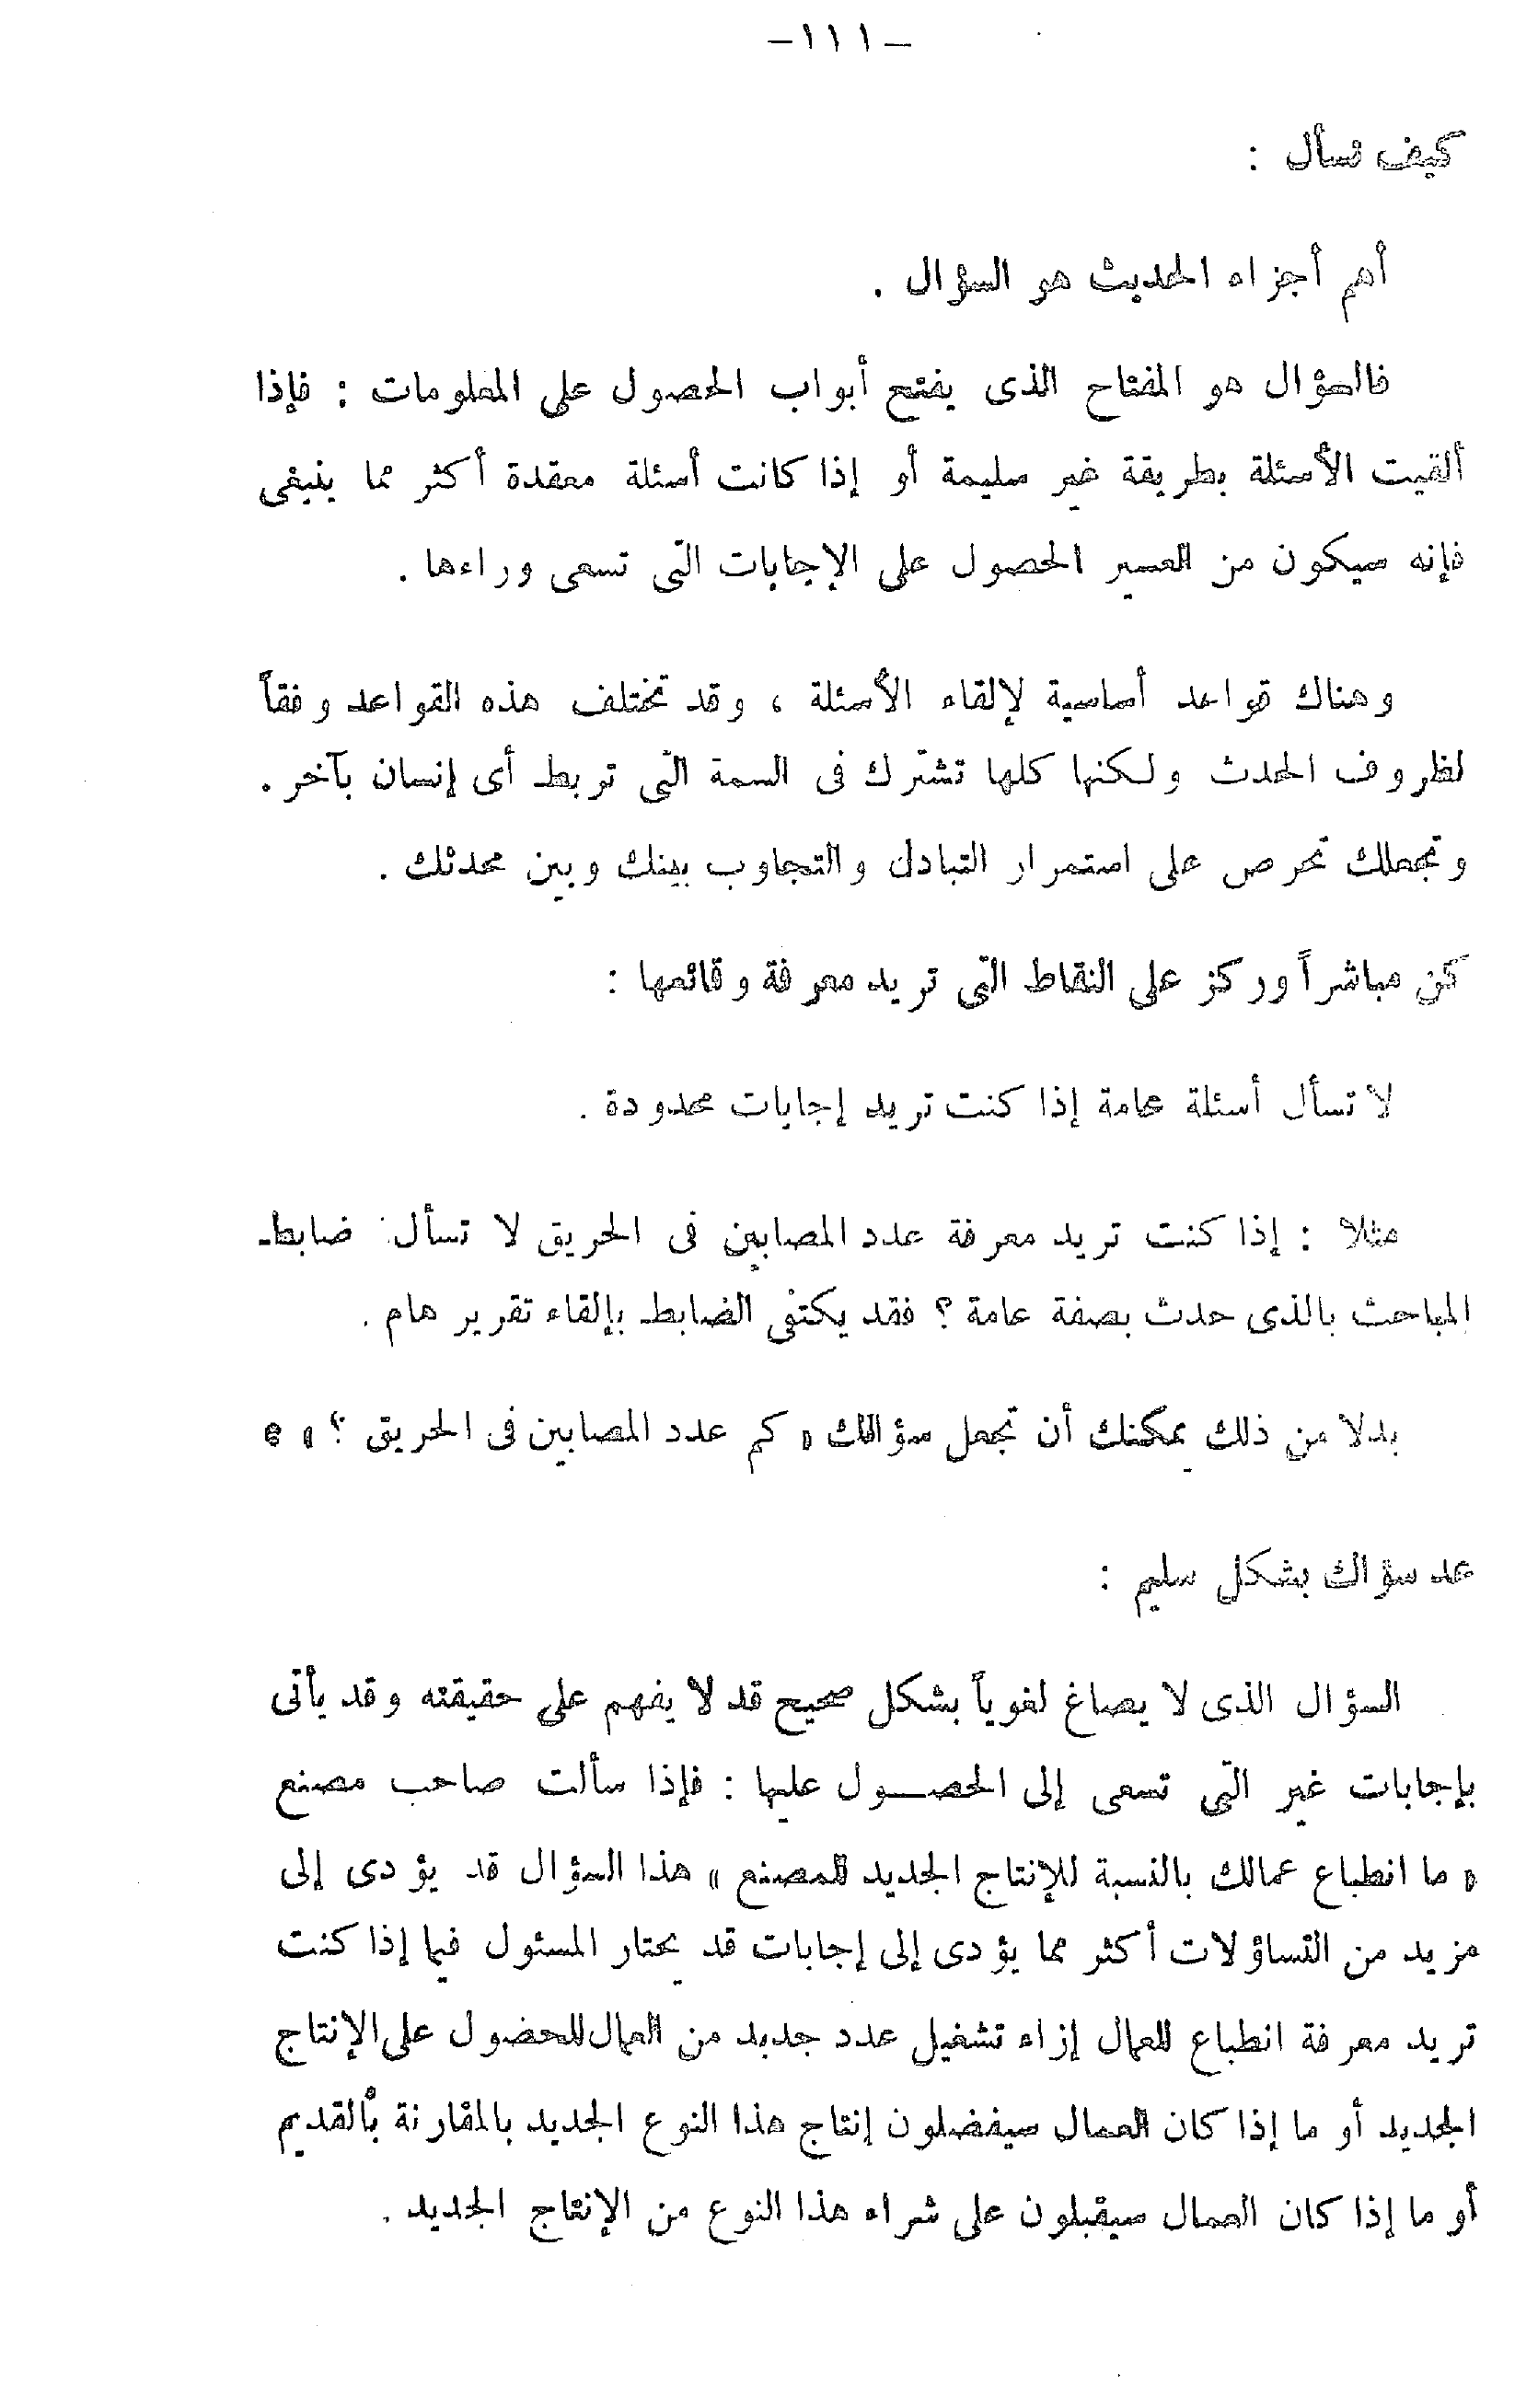 -١١١-
كيف تسأل :
أهم أجزاء الحديث هو السؤال .
فالسؤال هو المفتاح الذى يفتح أبواب الحصول على المعلومات : فإذا
ألقيت الأسئلة بطريقة غير سليمة أو إذا كانت أسئلة معقدة أكثر مما ينبغى
فإنه سيكون من العسير الحصول على الإجابات التى تسعى وراءها .
وهناك قواعد أساسية لإلقاء الأسئلة ، وقد تختلف هذه القواعد وفقاً
لظروف الحدث ولكنها كلها تشترك فى السمة التى تربط أى إنسان بآخر .
وتجعلك تحرص على استمرار التبادل والتجاوب بينك وبين محدثك .
كن مباشراً وركز على النقاط التى تريد معرفة وقائعها :
لا تسأل أسئلة عامة إذا كنت تريد إجابات محدودة .
مثلا : إذا كنت تريد معرفة عدد المصابين فى الحريق لا تسأل ضابط
المباحث بالذى حدث بصفة عامة ؟ فقد يكتفى الضابط بإلقاء تقرير هام .
بدلا من ذلك يمكنك أن تجعل سؤالك « كم عدد المصابين فى الحريق ؟ » .
عد سؤالك بشكل سليم :
السؤال الذى لا يصاغ لغوياً بشكل صحيح قد لا يفهم على حقيقته وقد يأتى
بإجابات غير التى تسعى إلى الحصـول عليها : فإذا سألت صاحب مصنع
« ما انطباع عمالك بالنسبة للإنتاج الجديد للمصنع » هذا السؤال قد يؤدى إلى
مزيد من التساؤلات أكثر مما يؤدى إلى إجابات قد يحتار المسئول فيما إذا كنت
تريد معرفة انطباع للعمال إزاء تشغيل عدد جديد من العمال للحضول على الإنتاج
الجديد أو ما إذا كان العمال سيفضلون إنتاج هذا النوع الجديد بالمقارنة بالقديم
أو ما إذا كان العمال سيقبلون على شراء هذا النوع من الإنتاج الجديد .